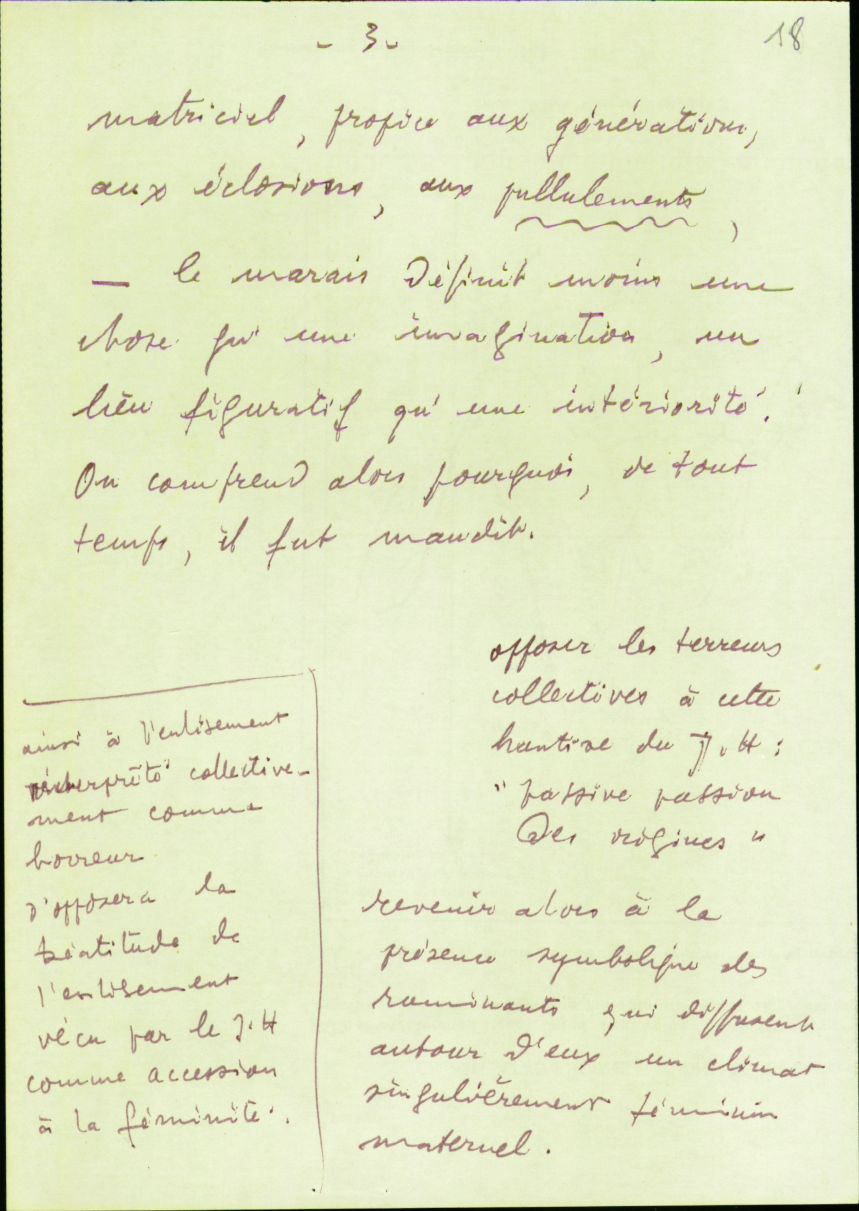 - 3 -
18
matriciel, propice aux générations,
aux éclosions, aux pullulements,
— le marais définit moins une
chose qu'une imagination, un
lieu figuratif qu'une intériorité.
On comprend alors pourquoi, de tout
temps, il fut maudit.
opposer les terreurs
collectives à cette
hantise du J.H :
" passive passion
des origines "
revenir alors à la
présence symbolique des
ruminants qui diffusent
autour d'eux un climat
singulièrement féminin
maternel.
ainsi à l'enlisement
interprété collective-
ment comme
horreur
s'opposera la
béatitude de
l'enlisement
vécu par le J.H
comme accession
à la féminité.